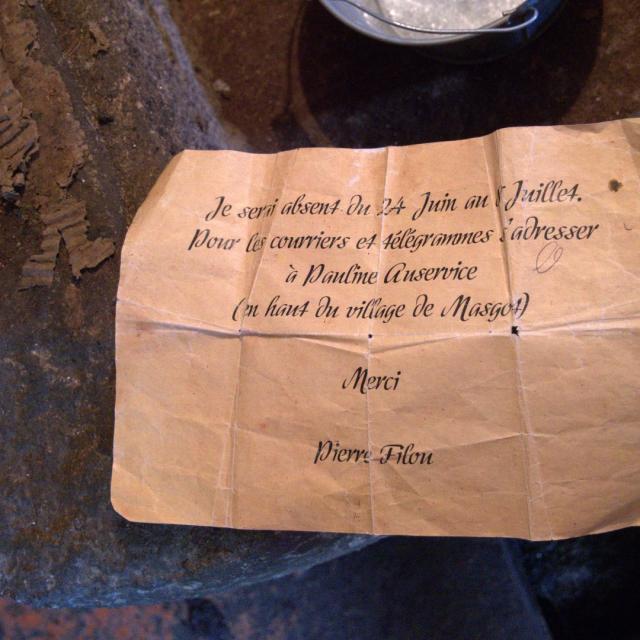 Je serai absent du 24 Juin au Juillet.
Pour les courriers et télégrammes s'adresser
à Pauline Auservice
(en haut du village de Masgot)
Merci
Pierre Filou